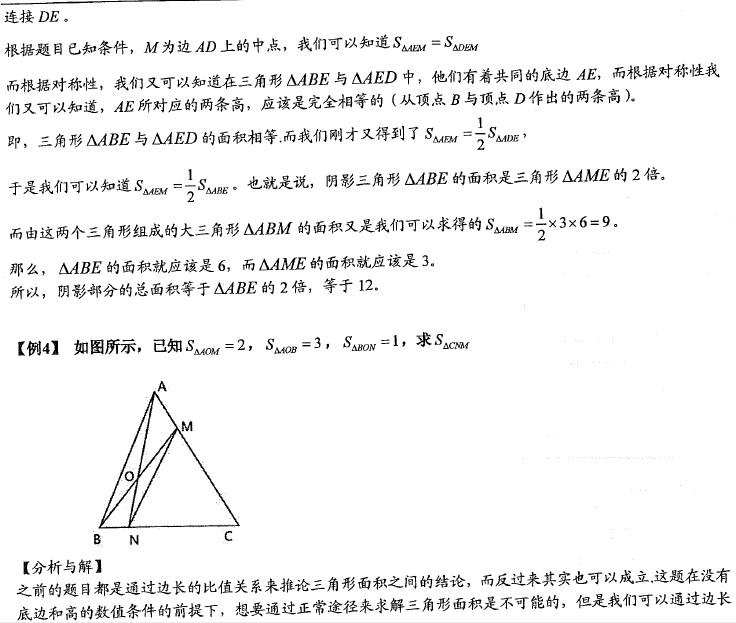 连接 DE 。
根据题目已知条件，M 为边 AD 上的中点，我们可以知道 S△AEM = S△DEM
而根据对称性，我们又可以知道在三角形 △ABE 与 △AED 中，他们有着共同的底边 AE，而根据对称性我
们又可以知道，AE 所对应的两条高，应该是完全相等的（从顶点 B 与顶点 D 作出的两条高）。
即，三角形 △ABE 与 △AED 的面积相等.而我们刚才又得到了 S△AEM = 1/2 S△ADE，
于是我们可以知道 S△AEM = 1/2 S△ABE。也就是说，阴影三角形 △ABE 的面积是三角形 △AME 的 2 倍。
而由这两个三角形组成的大三角形 △ABM 的面积又是我们可以求得的 S△ABM = 1/2 ×3×6=9。
那么，△ABE 的面积就应该是 6，而 △AME 的面积就应该是 3。
所以，阴影部分的总面积等于 △ABE 的 2 倍，等于 12。
【例4】 如图所示，已知 S△AOM = 2， S△AOB = 3， S△BON = 1，求 S△CNM
A
M
O
B N C
【分析与解】
之前的题目都是通过边长的比值关系来推论三角形面积之间的结论，而反过来其实也可以成立.这题在没有
底边和高的数值条件的前提下，想要通过正常途径来求解三角形面积是不可能的，但是我们可以通过边长